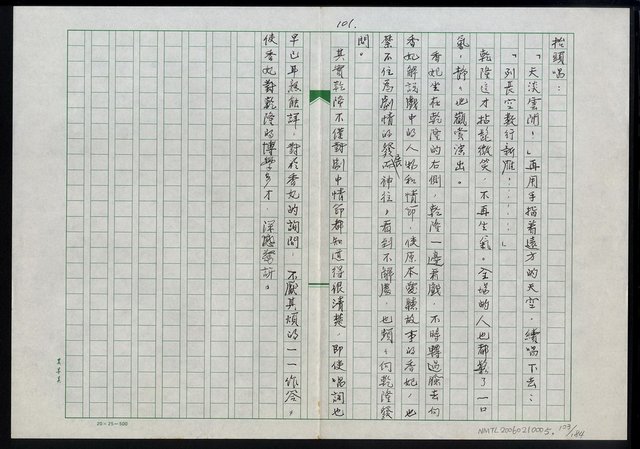 101.
抬頭唱：
「天淡雲閒！」再用手指着遠方的天空，續唱下去：
「列長空數行新雁……」
乾隆這才拈髭微笑，不再生氣。全場的人也都鬆了一口
氣，靜靜地觀賞演出。
香妃坐在乾隆的右側，乾隆一邊看戲，不時轉過臉去向
香妃解說戲中的人物和情節，使原本愛聽故事的香妃，也
禁不住為劇情的發展而神往，看到不解處，也頻頻向乾隆發
問。
其實乾隆不僅對劇中情節都知道得很清楚，即使唱詞也
早已耳熟能詳，對於香妃的詢問，不厭其煩的一一作答，
使香妃對乾隆的博學多才，深感驚訝。
20×25=500
NMTL20060210005.
103/184